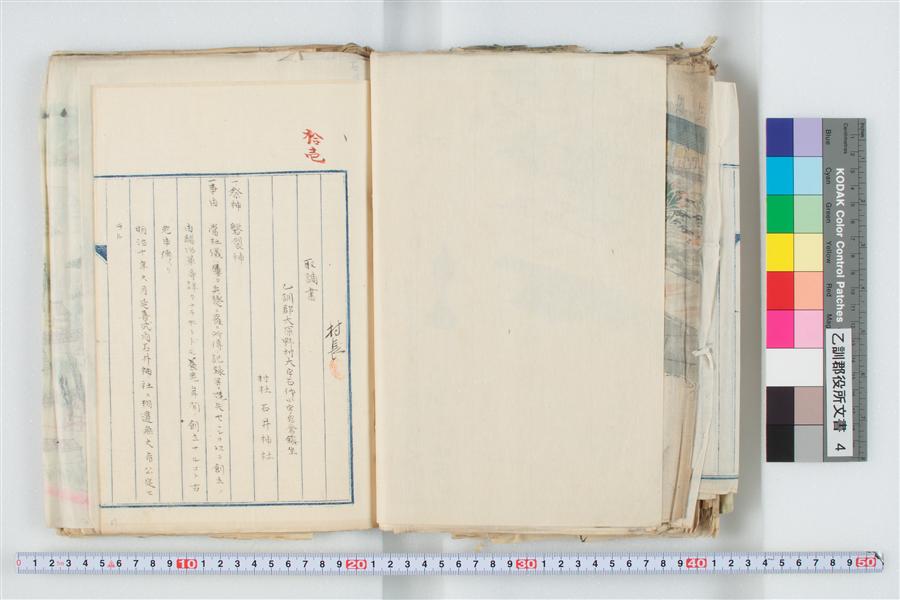 拾壱
村長
取調書
乙訓郡大原野村大字石作小字
村社 石井神社
一祭神 磐裂神
一事由 当社儀屡々兵燹ニ罹リ古傳記録等焼失セシヲ以テ創立ノ
由緒沿革等詳カナラサレトモ養老年間創立ナルコト古
老申傳ヘリ
明治十年六月延喜式内石井神社ニ相違無之旨公定セ
ラル
乙訓郡役所文書 4
KODAK Color Control Patches
Blue Cyan Green Yellow Red
Centimetres
0 1 2 3 4 5 6 7 8 9 10 1 2 3 4 5 6 7 8 9 20 1 2 3 4 5 6 7 8 9 30 1 2 3 4 5 6 7 8 9 40 1 2 3 4 5 6 7 8 9 50